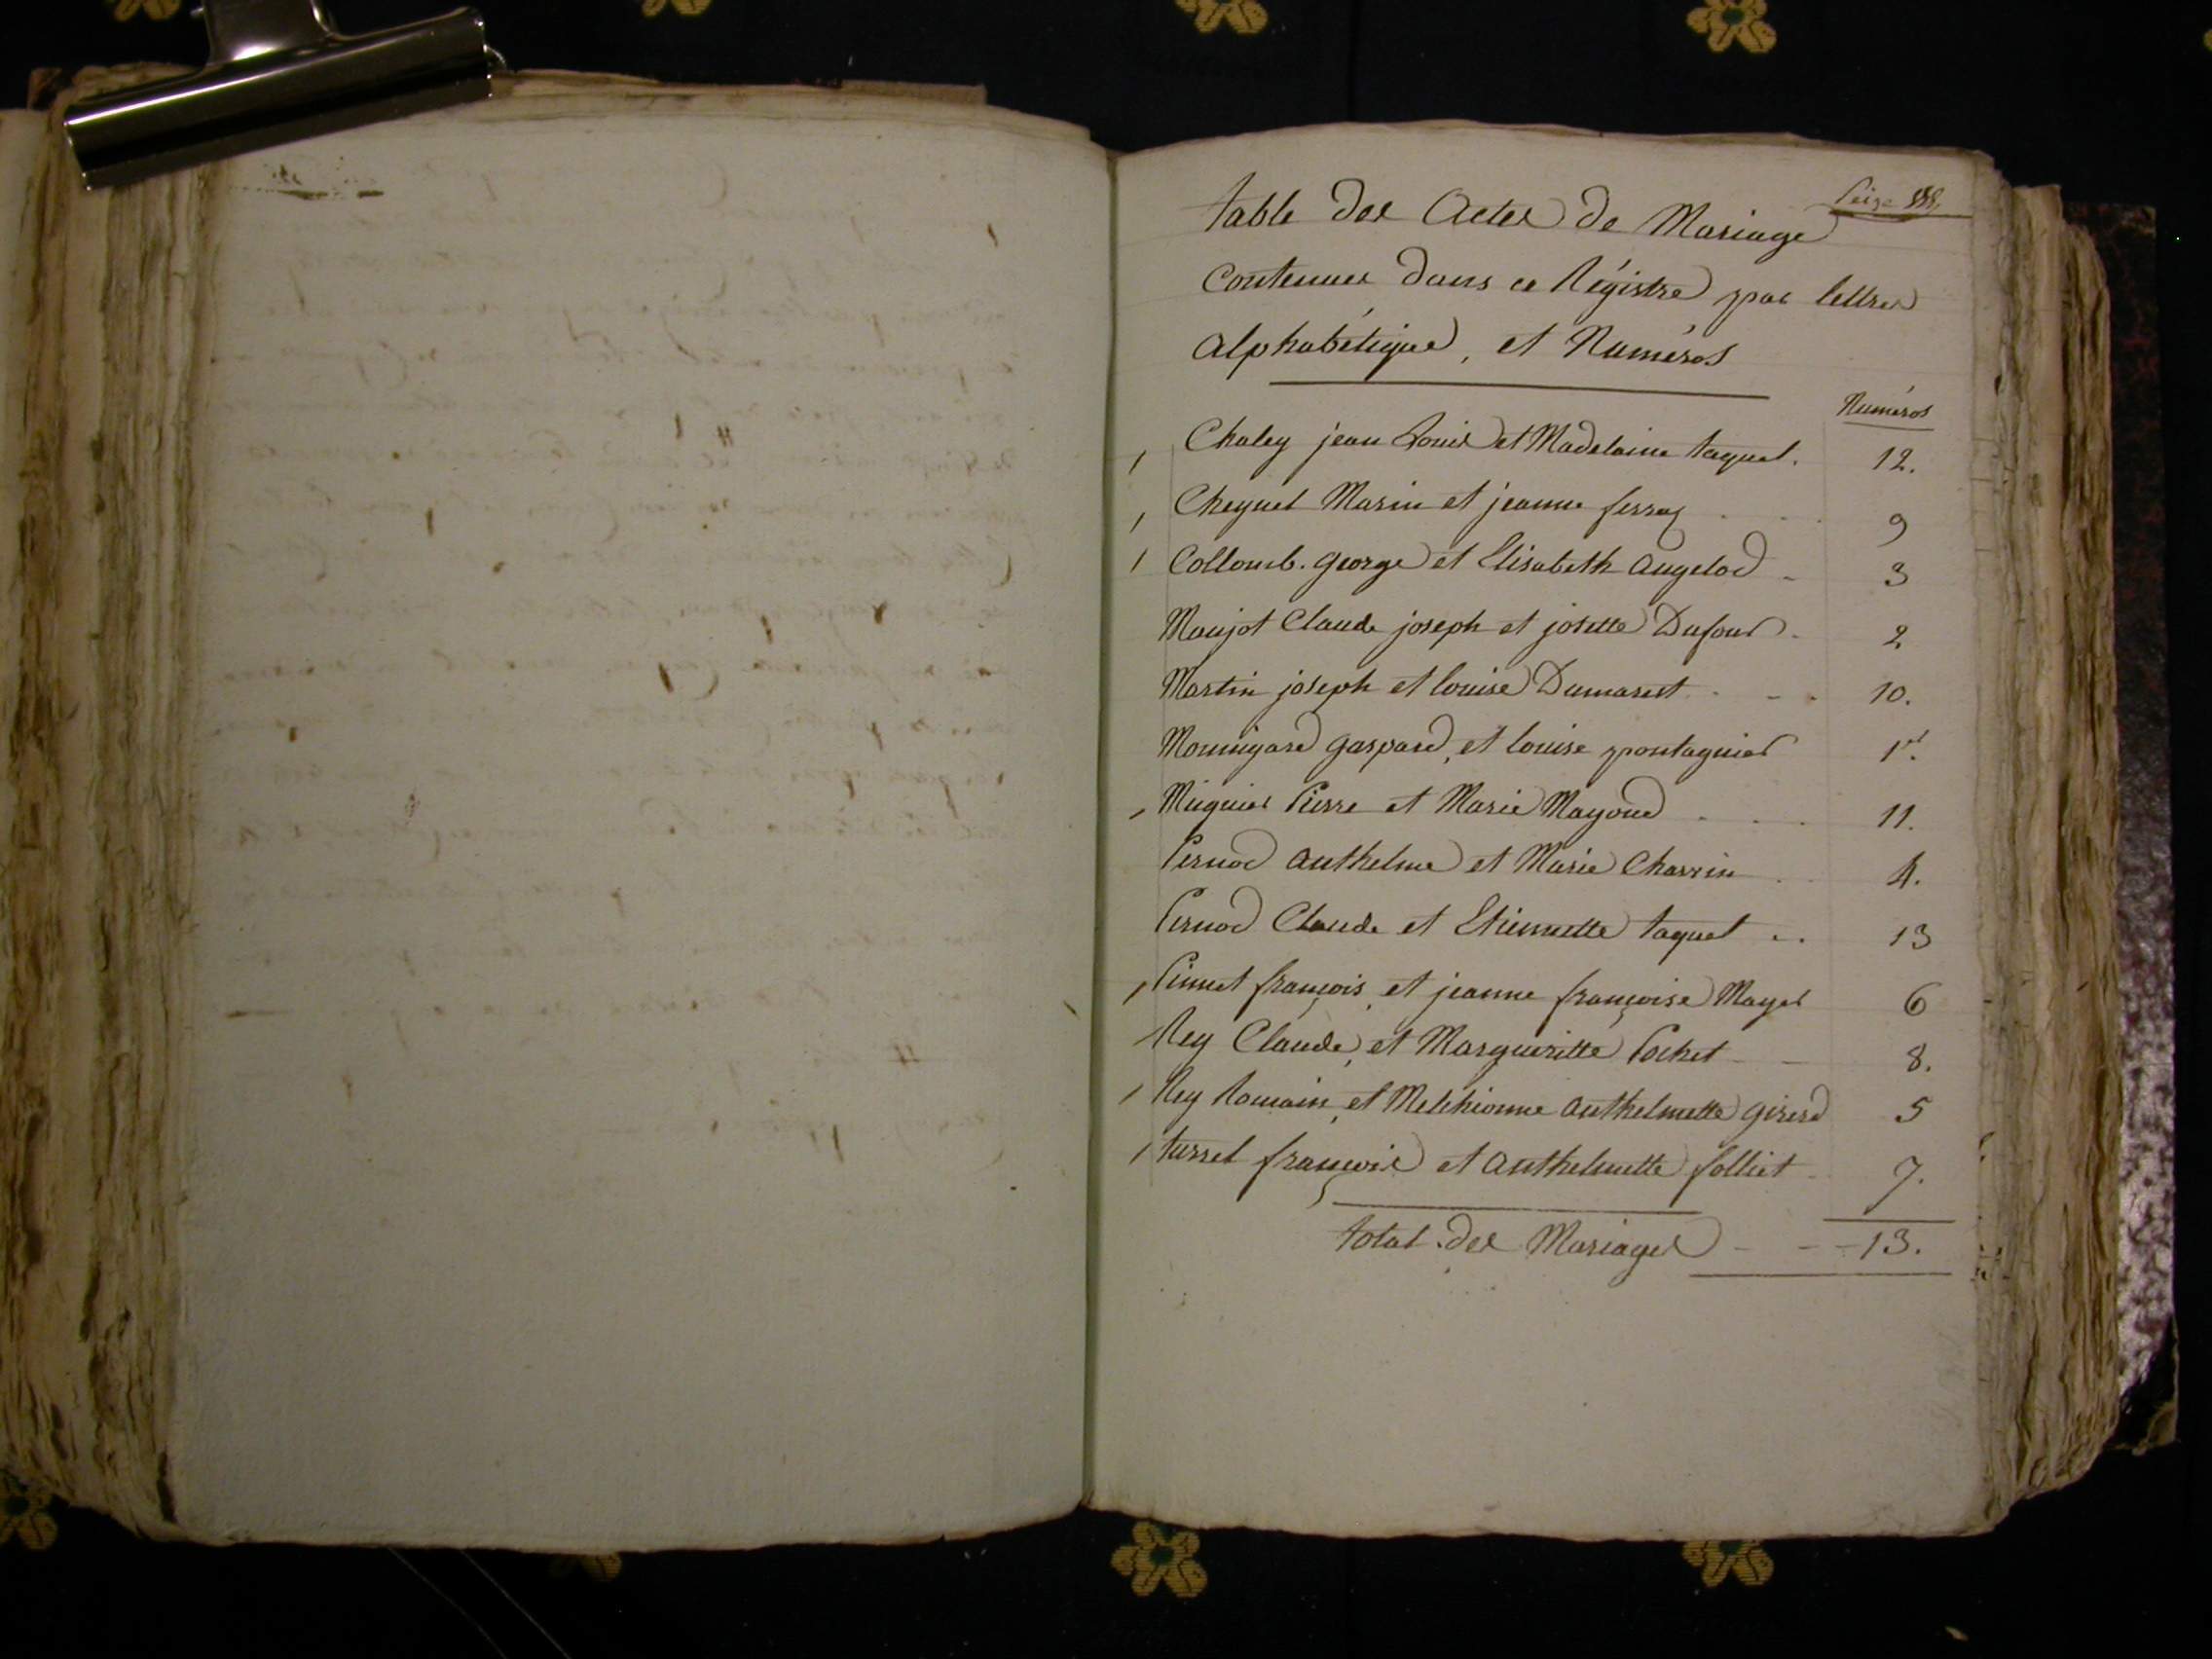 Seize
table des Actes de Mariage
contenues dans ce Régistre par lettres
alphabétique, et Numéros
Numéros
Chaley jean Louis et Madelaine taquet. 12.
Cheynet Marin et jeanne ferraz 9
Collomb. george et Elisabeth Angelod 3
Maujot Claude joseph et josette Dufour 2
Martin joseph et louise Dumarest 10.
gaspard, et louise pontagnier 1er.
Muguier Pierre et Marie Mayoud 11.
Pernod anthelme et Marie Charvin 4.
Pernod Claude et Etiennette taquet 13
Pinnet françois, et jeanne françoise Mayet 6
Rey Claude, et Margueritte Pochet 8.
Rey Romain, et Melchionne anthelmette girerd 5
turrel françois et anthelmette folliet 7.
total des Mariages 13.